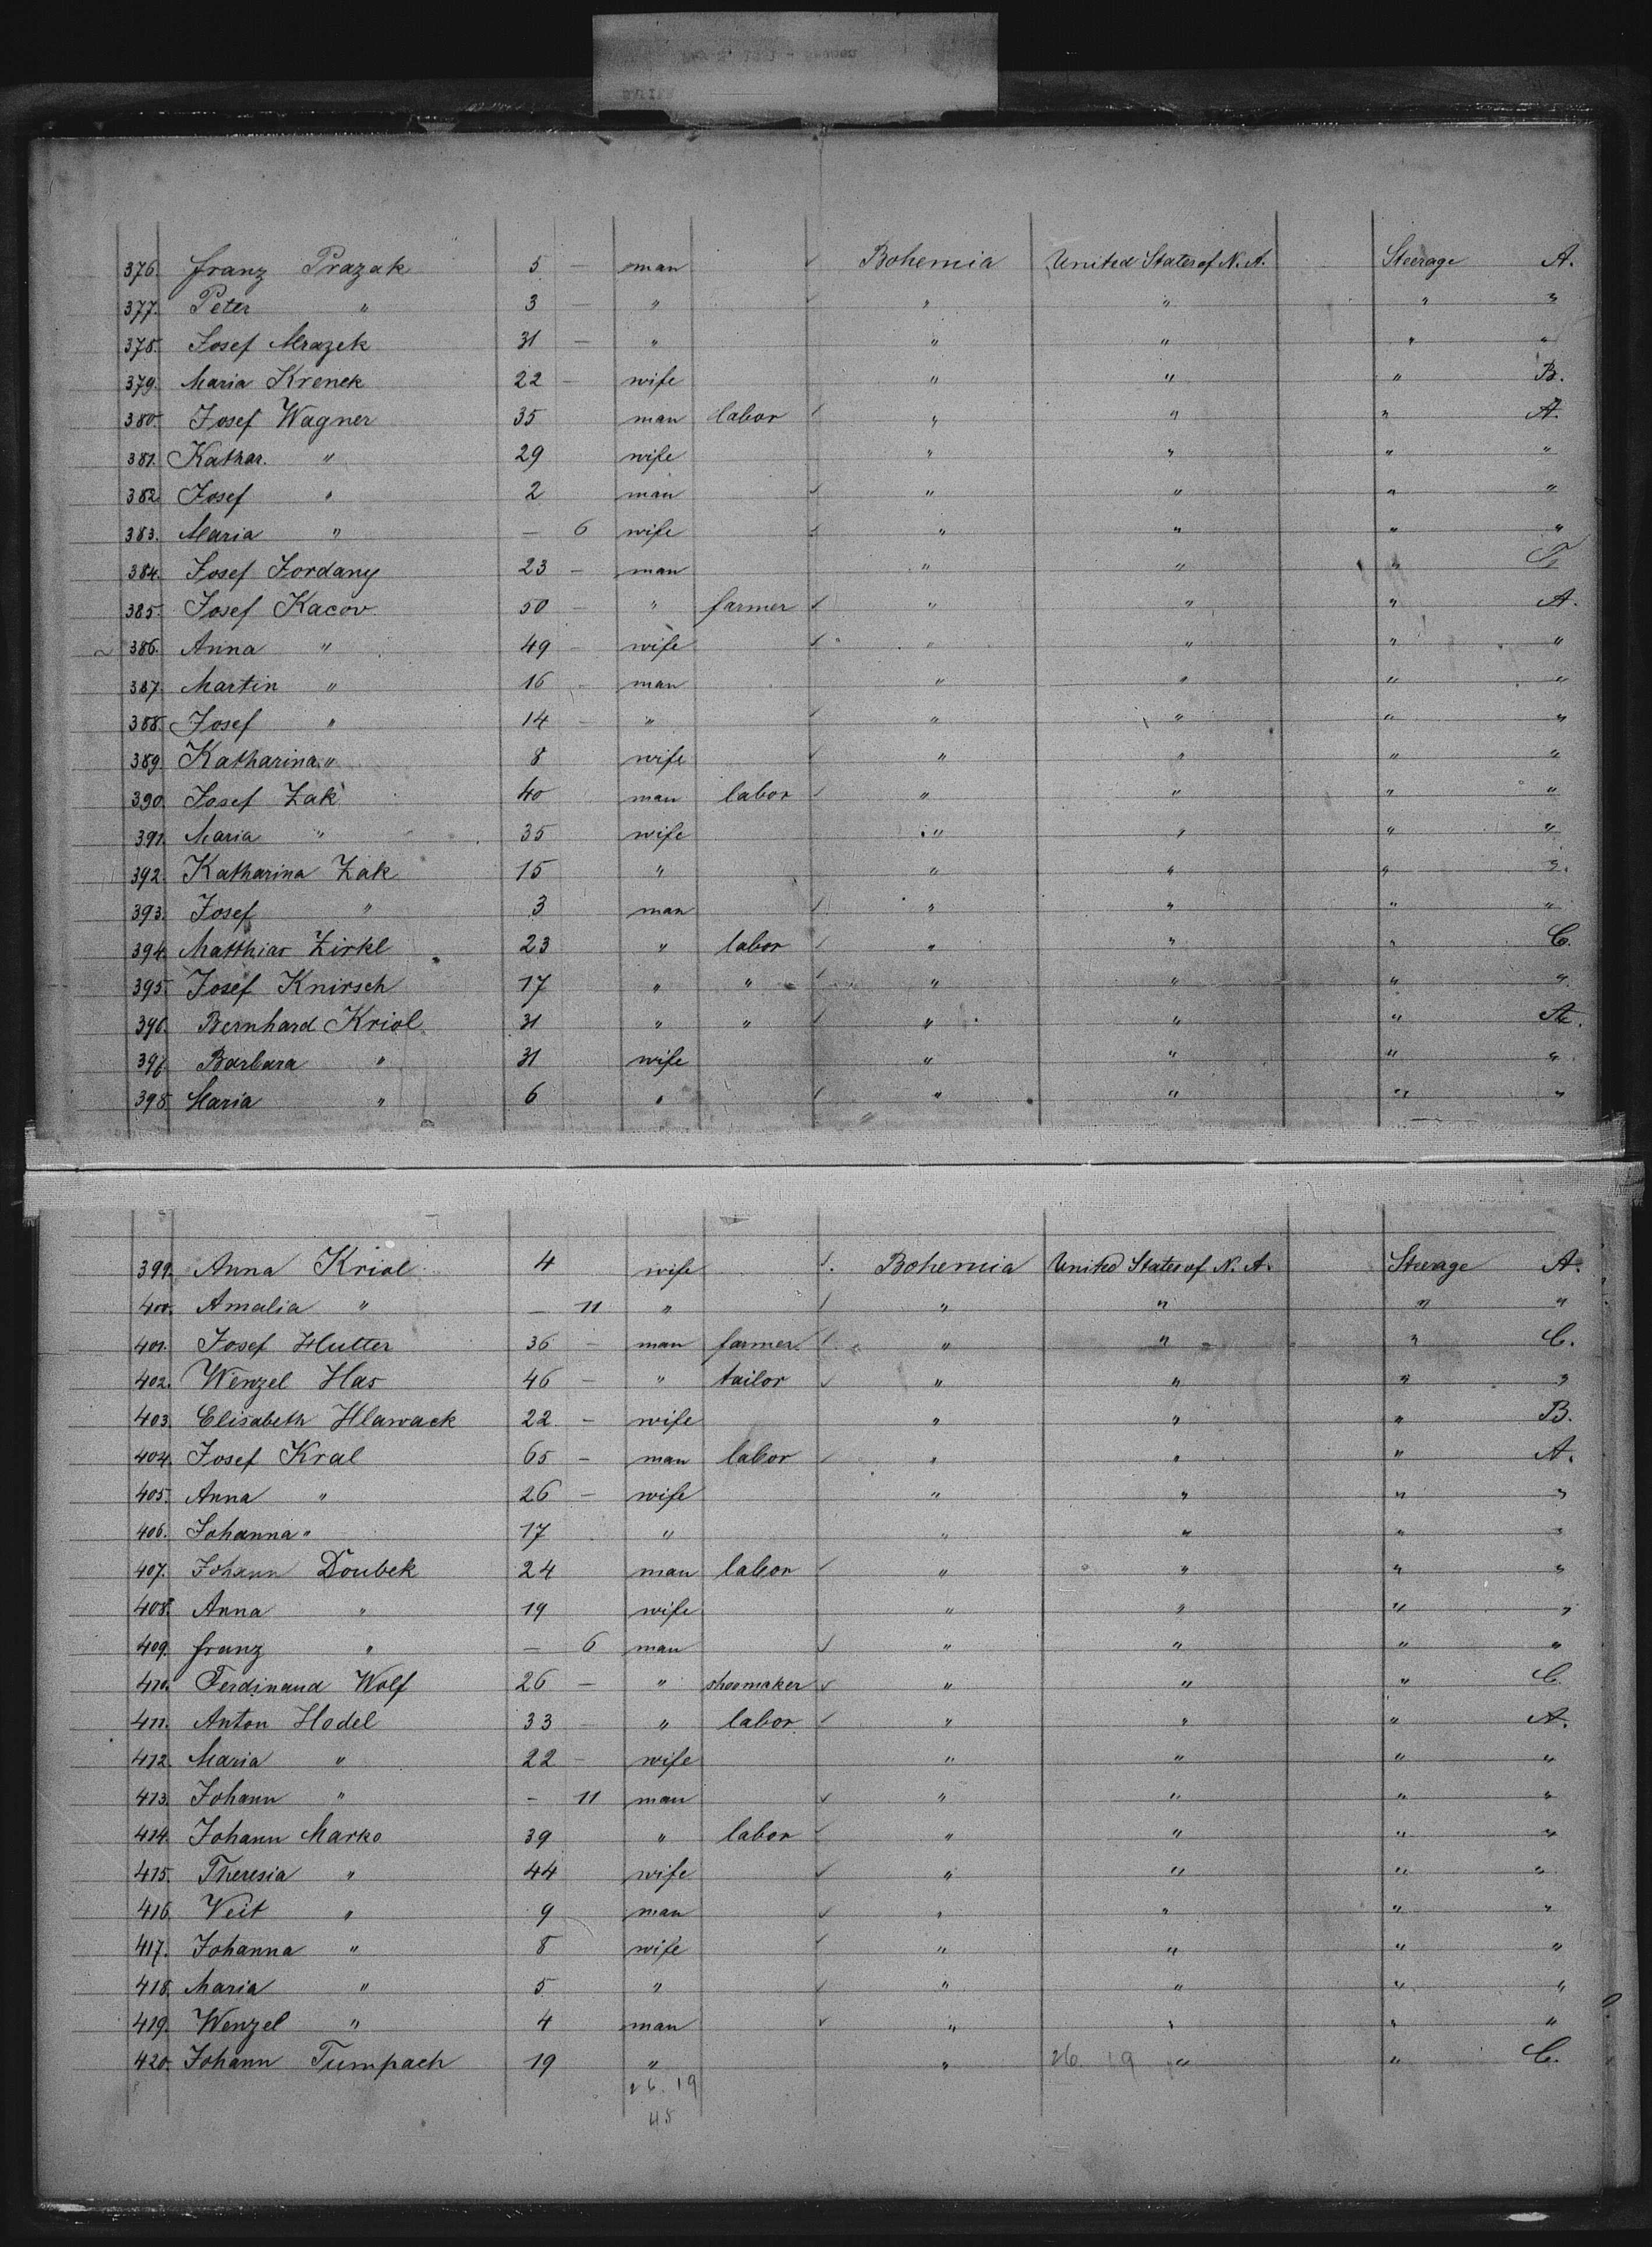 376. Franz Prazak 5 — man Bohemia United States of N. A. Steerage A.
377. Peter " 3 — " " " " "
378. Josef Mrazek 31 — " " " " "
379. Maria Krenek 22 — wife " " " B.
380. Josef Wagner 35 man labor " " " A.
381. Kathar. " 29 wife " " " "
382. Josef " 2 man " " " "
383. Maria " — 6 wife " " " "
384. Josef Jordany 23 — man " " "
385. Josef Kacov 50 — " farmer " " " A.
386. Anna " 49 — wife " " " "
387. Martin " 16 — man " " " "
388. Josef " 14 — " " " " "
389. Katharina " 8 wife " " " "
390. Josef Zak 40 man labor " " " "
391. Maria " 35 wife " " " "
392. Katharina Zak 15 " " " " "
393. Josef " 3 man " " " "
394. Matthias Zirkl 23 " labor " " " C.
395. Josef Knirsch 17 " " " " " "
396. Bernhard Kriol 31 " " " " " A.
397. Barbara " 31 wife " " " "
398. Maria " 6 " " " " "
399. Anna Kriol 4 wife Bohemia United States of N. A. Steerage A.
400. Amalia " — 11 " " " " "
401. Josef Hutter 36 — man farmer " " " C.
402. Wenzel Has 46 — " tailor " " " "
403. Elisabeth Hlawack 22 — wife " " " B.
404. Josef Kral 65 — man labor " " " A.
405. Anna " 26 — wife " " " "
406. Johanna " 17 " " " " "
407. Johann Doubek 24 man labor " " " "
408. Anna " 19 wife " " " "
409. Franz " — 6 man " " " "
410. Ferdinand Wolf 26 — " shoomaker " " " C.
411. Anton Hodel 33 — " labor " " " A.
412. Maria " 22 — wife " " " "
413. Johann " — 11 man " " " "
414. Johann Marko 39 " labor " " " "
415. Theresia " 44 wife " " " "
416. Veit " 9 man " " " "
417. Johanna " 8 wife " " " "
418. Maria " 5 " " " " "
419. Wenzel " 4 man " " " "
420. Johann Tumpach 19 " " 26. 19 " " C.
26. 19
45